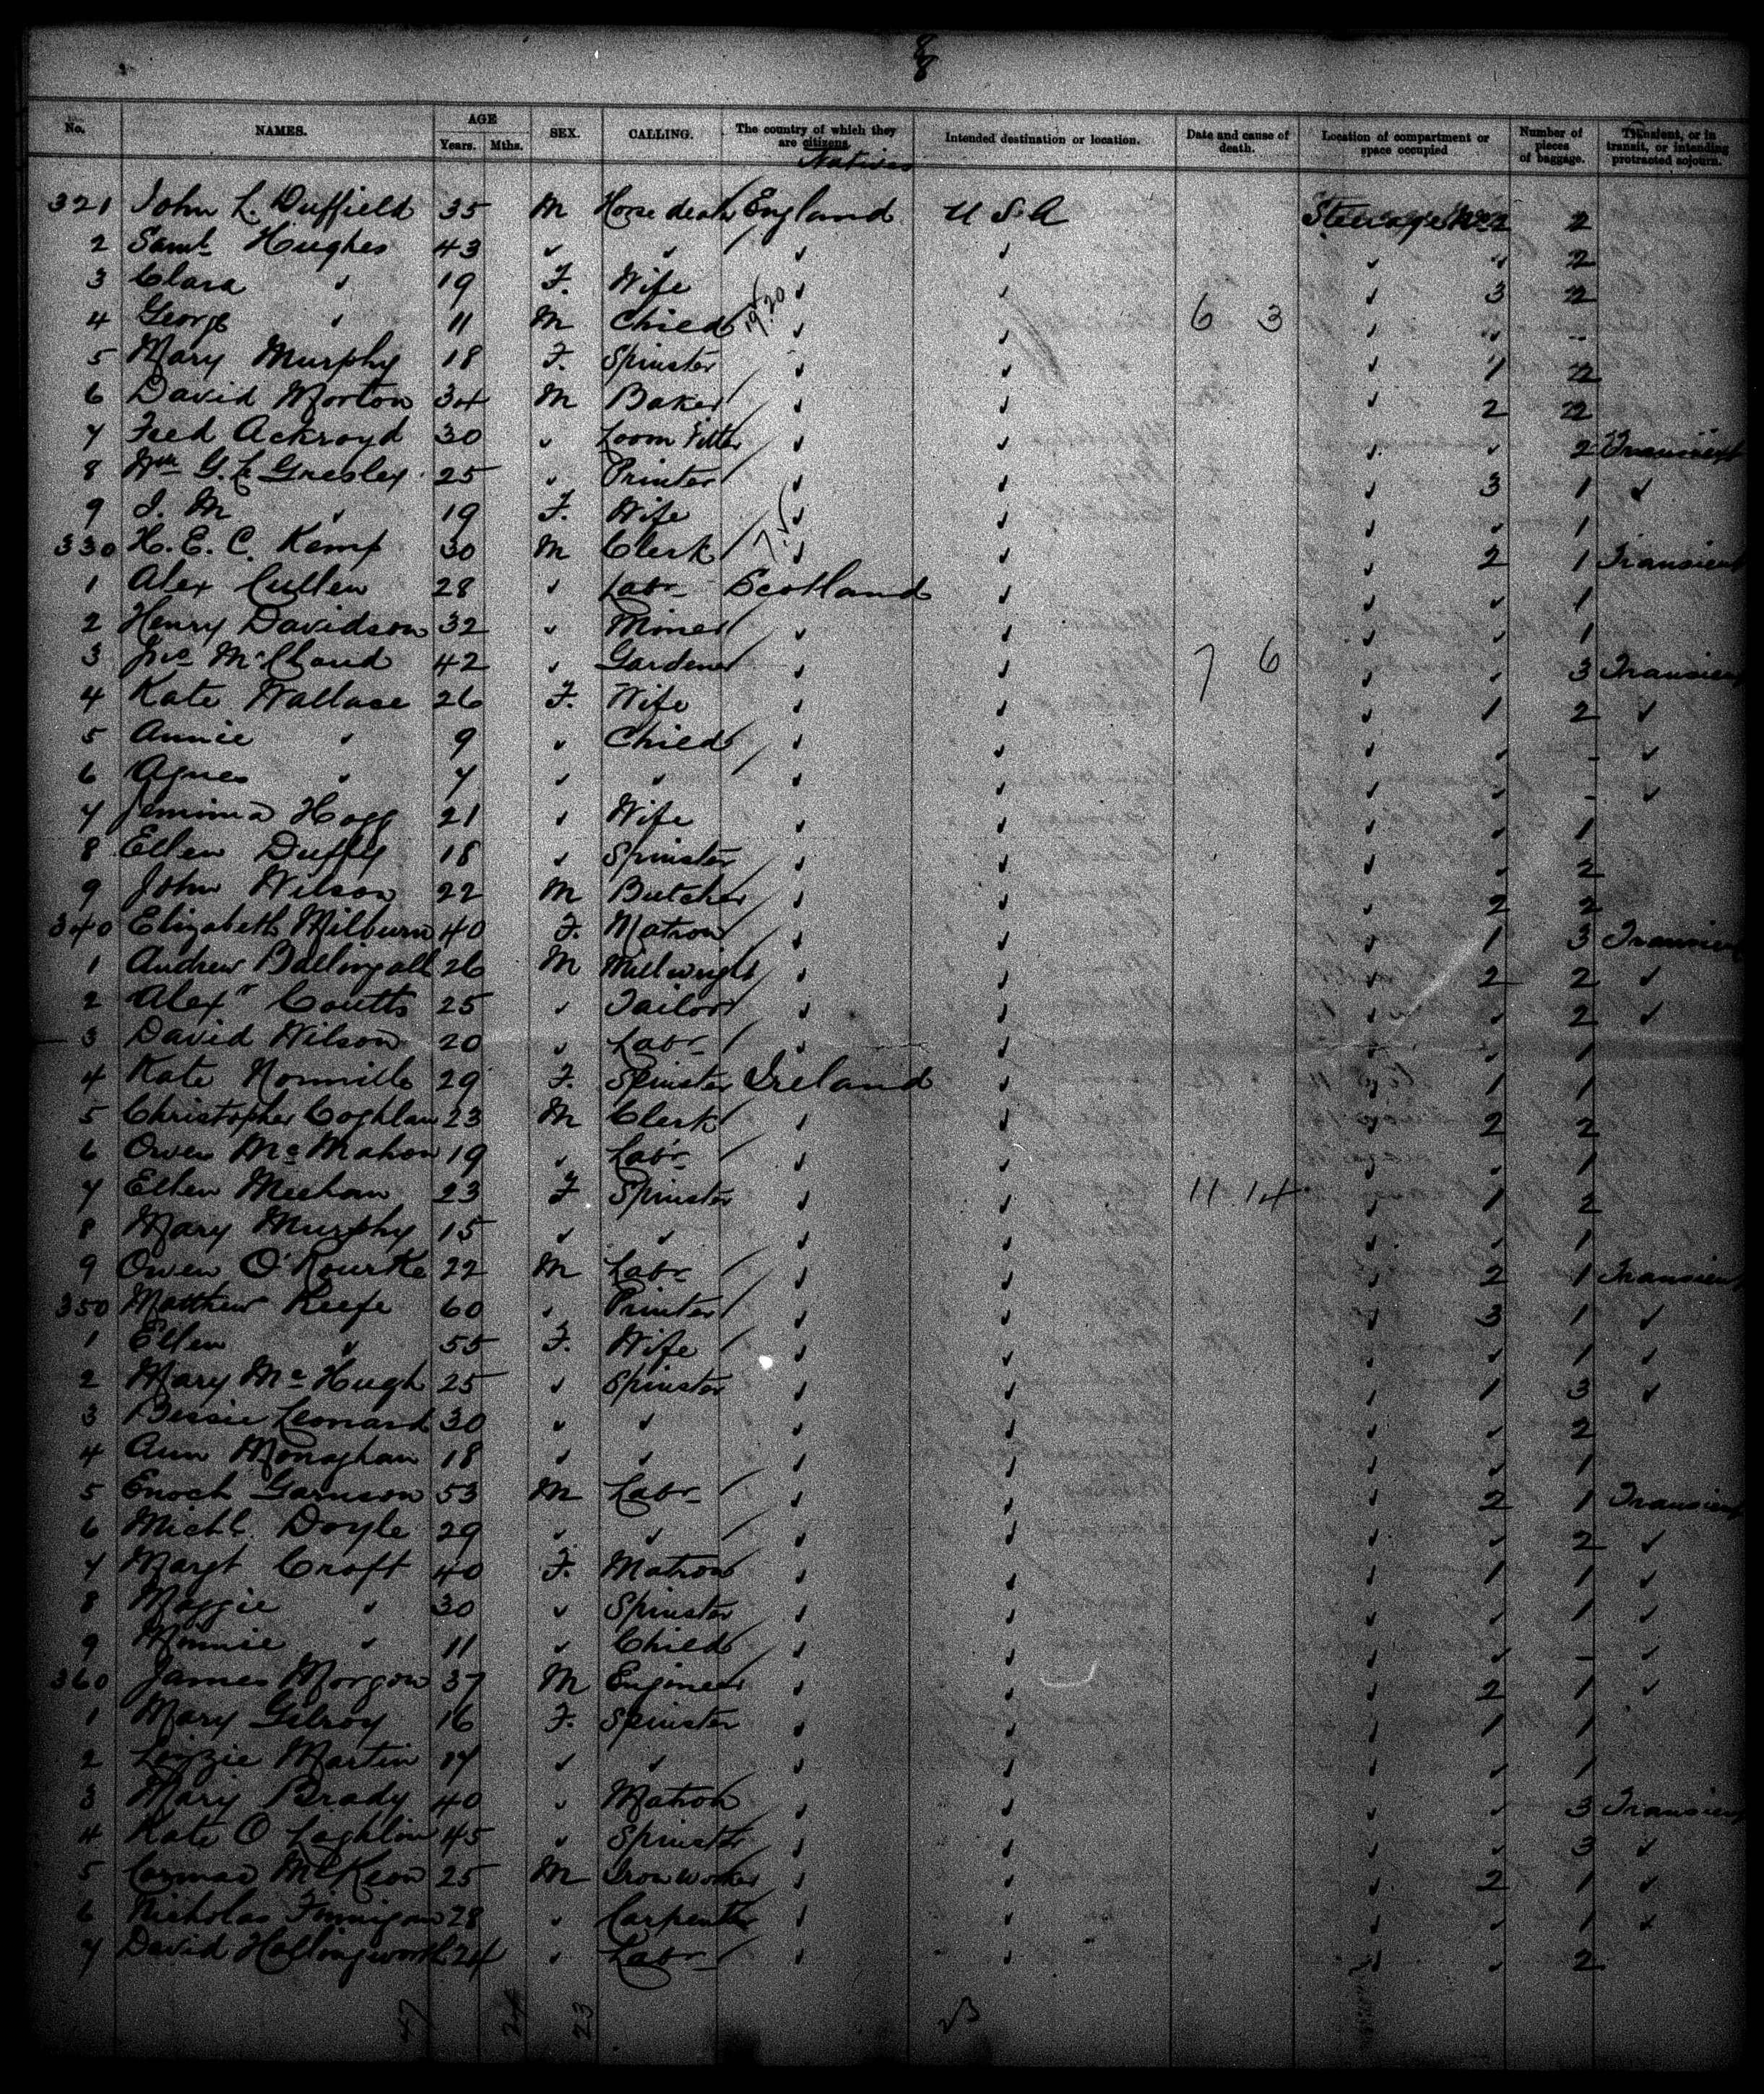 8
8
No. NAMES. AGE Years. Mths. SEX. CALLING. The country of which they are citizens. Intended destination or location. Date and cause of death. Location of compartment or space occupied Number of pieces of baggage. Transient, or in transit, or intending protracted sojourn.
Natives
321 John L. Duffield 35 M Horse dealer England U S. A Steerage No 2 2
2 Saml Hughes 43 ✓ ✓ ✓ ✓ ✓ ✓ 2
3 Clara ✓ 19 F. Wife ✓ ✓ ✓ 3 2
4 George ✓ 11 M Child 19.20 ✓ ✓ 6 3 ✓ ✓ -
5 Mary Murphy 18 F. Spinster ✓ ✓ ✓ 1 2
6 David Morton 34 M Baker ✓ ✓ ✓ 2 2
7 Fred Ackroyd 30 ✓ Loom Fitter ✓ ✓ ✓ ✓ 2 Transient
8 Wm G. L. Gresley 25 ✓ Printer ✓ ✓ ✓ 3 1 ✓
9 I. M ✓ 19 F. Wife ✓ ✓ ✓ ✓ 1
330 H. E. C. Kemp 30 M Clerk ✓ ✓ ✓ 2 1 Transient
1 Alex Cullen 28 ✓ Labr Scotland ✓ ✓ ✓ 1
2 Henry Davidson 32 ✓ Miner ✓ ✓ ✓ ✓ 1
3 Jno McCloud 42 ✓ Gardener ✓ ✓ 7 6 ✓ ✓ 3 Transient
4 Kate Wallace 26 F. Wife ✓ ✓ ✓ 1 2 ✓
5 Annie ✓ 9 ✓ Child ✓ ✓ ✓ ✓ - ✓
6 Agnes ✓ 7 ✓ ✓ ✓ ✓ ✓ ✓ - ✓
7 Jemima Hogg 21 ✓ Wife ✓ ✓ ✓ ✓ 1
8 Ellen Duffy 18 ✓ Spinster ✓ ✓ ✓ ✓ 2
9 John Wilson 22 M Butcher ✓ ✓ ✓ 2 2
340 Elizabeth Milburn 40 F. Matron ✓ ✓ ✓ 1 3 Transient
1 Andrew Ballingall 26 M Millwright ✓ ✓ ✓ 2 2 ✓
2 Alexr Coutts 25 ✓ Tailor ✓ ✓ ✓ ✓ 2 ✓
3 David Wilson 20 ✓ Labr ✓ ✓ ✓ ✓ 1
4 Kate 29 F. Spinster Ireland ✓ ✓ 1 1
5 Christopher Coghlan 23 M Clerk ✓ ✓ ✓ 2 2
6 Owen McMahon 19 ✓ Labr ✓ ✓ ✓ ✓ 1
7 Ellen Meehan 23 F Spinster ✓ ✓ 11 14 ✓ 1 2
8 Mary Murphy 15 ✓ ✓ ✓ ✓ ✓ ✓ 1
9 Owen O'Rourke 22 M Labr ✓ ✓ ✓ 2 1 Transient
350 Matthew Keefe 60 ✓ Printer ✓ ✓ ✓ 3 1 ✓
1 Ellen ✓ 55 F. Wife ✓ ✓ ✓ ✓ 1 ✓
2 Mary McHugh 25 ✓ Spinster ✓ ✓ ✓ 1 3 ✓
3 Bessie Leonard 30 ✓ ✓ ✓ ✓ ✓ ✓ 2
4 Ann Monaghan 18 ✓ ✓ ✓ ✓ ✓ ✓ 1
5 Enoch Garnson 53 M Labr ✓ ✓ ✓ 2 1 Transient
6 Michl. Doyle 29 ✓ ✓ ✓ ✓ ✓ ✓ 2 ✓
7 Margt Croft 40 F. Matron ✓ ✓ ✓ 1 1 ✓
8 Maggie ✓ 30 ✓ Spinster ✓ ✓ ✓ ✓ 1 ✓
9 Minnie ✓ 11 ✓ Child ✓ ✓ ✓ ✓ - ✓
360 James Morgan 37 M Engineer ✓ ✓ ✓ 2 1 ✓
1 Mary Gilroy 16 F. Spinster ✓ ✓ ✓ 1 1
2 Lizzie Martin 17 ✓ ✓ ✓ ✓ ✓ ✓ 1
3 Mary Brady 40 ✓ Matron ✓ ✓ ✓ ✓ 3 Transient
4 Kate O Loghlin 45 ✓ Spinster ✓ ✓ ✓ ✓ 3 ✓
5 Cormac McKeon 25 M Iron worker ✓ ✓ ✓ 2 1 ✓
6 Nicholas Finnigan 28 ✓ Carpenter ✓ ✓ ✓ ✓ 1 ✓
7 David Hollingworth 24 ✓ Labr ✓ ✓ ✓ ✓ 2
47 24 23